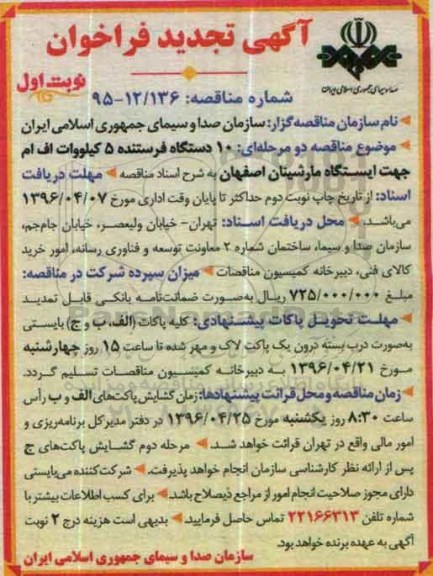 آگهی تجدید فراخوان
صدا و سیمای جمهوری اسلامی ایران
نوبت اول
شماره مناقصه: ۱۲/۱۳۶-۹۵
نام سازمان مناقصه گزار: سازمان صدا و سیمای جمهوری اسلامی ایران
موضوع مناقصه دو مرحله‌ای: ۱۰ دستگاه فرستنده ۵ کیلووات اف ام
جهت ایستگاه مارشینان اصفهان به شرح اسناد مناقصه مهلت دریافت
اسناد: از تاریخ چاپ نوبت دوم حداکثر تا پایان وقت اداری مورخ ۱۳۹۶/۰۴/۰۷
می‌باشد. محل دریافت اسناد: تهران- خیابان ولیعصر، خیابان جام‌جم،
سازمان صدا و سیما، ساختمان شماره ۲ معاونت توسعه و فناوری رسانه، امور خرید
کالای فنی، دبیرخانه کمیسیون مناقصات میزان سپرده شرکت در مناقصه:
مبلغ ۷۲۵/۰۰۰/۰۰۰ ریال به‌صورت ضمانت‌نامه بانکی قابل تمدید
مهلت تحویل پاکات پیشنهادی: کلیه پاکات (الف، ب و ج) بایستی
به‌صورت درب بسته درون یک پاکت لاک و مهر شده تا ساعت ۱۵ روز چهارشنبه
مورخ ۱۳۹۶/۰۴/۲۱ به دبیرخانه کمیسیون مناقصات تسلیم گردد.
زمان مناقصه و محل قرائت پیشنهادها: زمان گشایش پاکت‌های الف و ب رأس
ساعت ۸:۳۰ روز یکشنبه مورخ ۱۳۹۶/۰۴/۲۵ در دفتر مدیرکل برنامه‌ریزی و
امور مالی واقع در تهران قرائت خواهد شد مرحله دوم گشایش پاکت‌های ج
پس از ارائه نظر کارشناسی سازمان انجام خواهد پذیرفت. شرکت‌کننده می‌بایستی
دارای مجوز صلاحیت انجام امور از مراجع ذیصلاح باشد. برای کسب اطلاعات بیشتر با
شماره تلفن ۲۲۱۶۶۳۱۳ تماس حاصل فرمایید. بدیهی است هزینه درج ۲ نوبت
آگهی به عهده برنده خواهد بود.
سازمان صدا و سیمای جمهوری اسلامی ایران